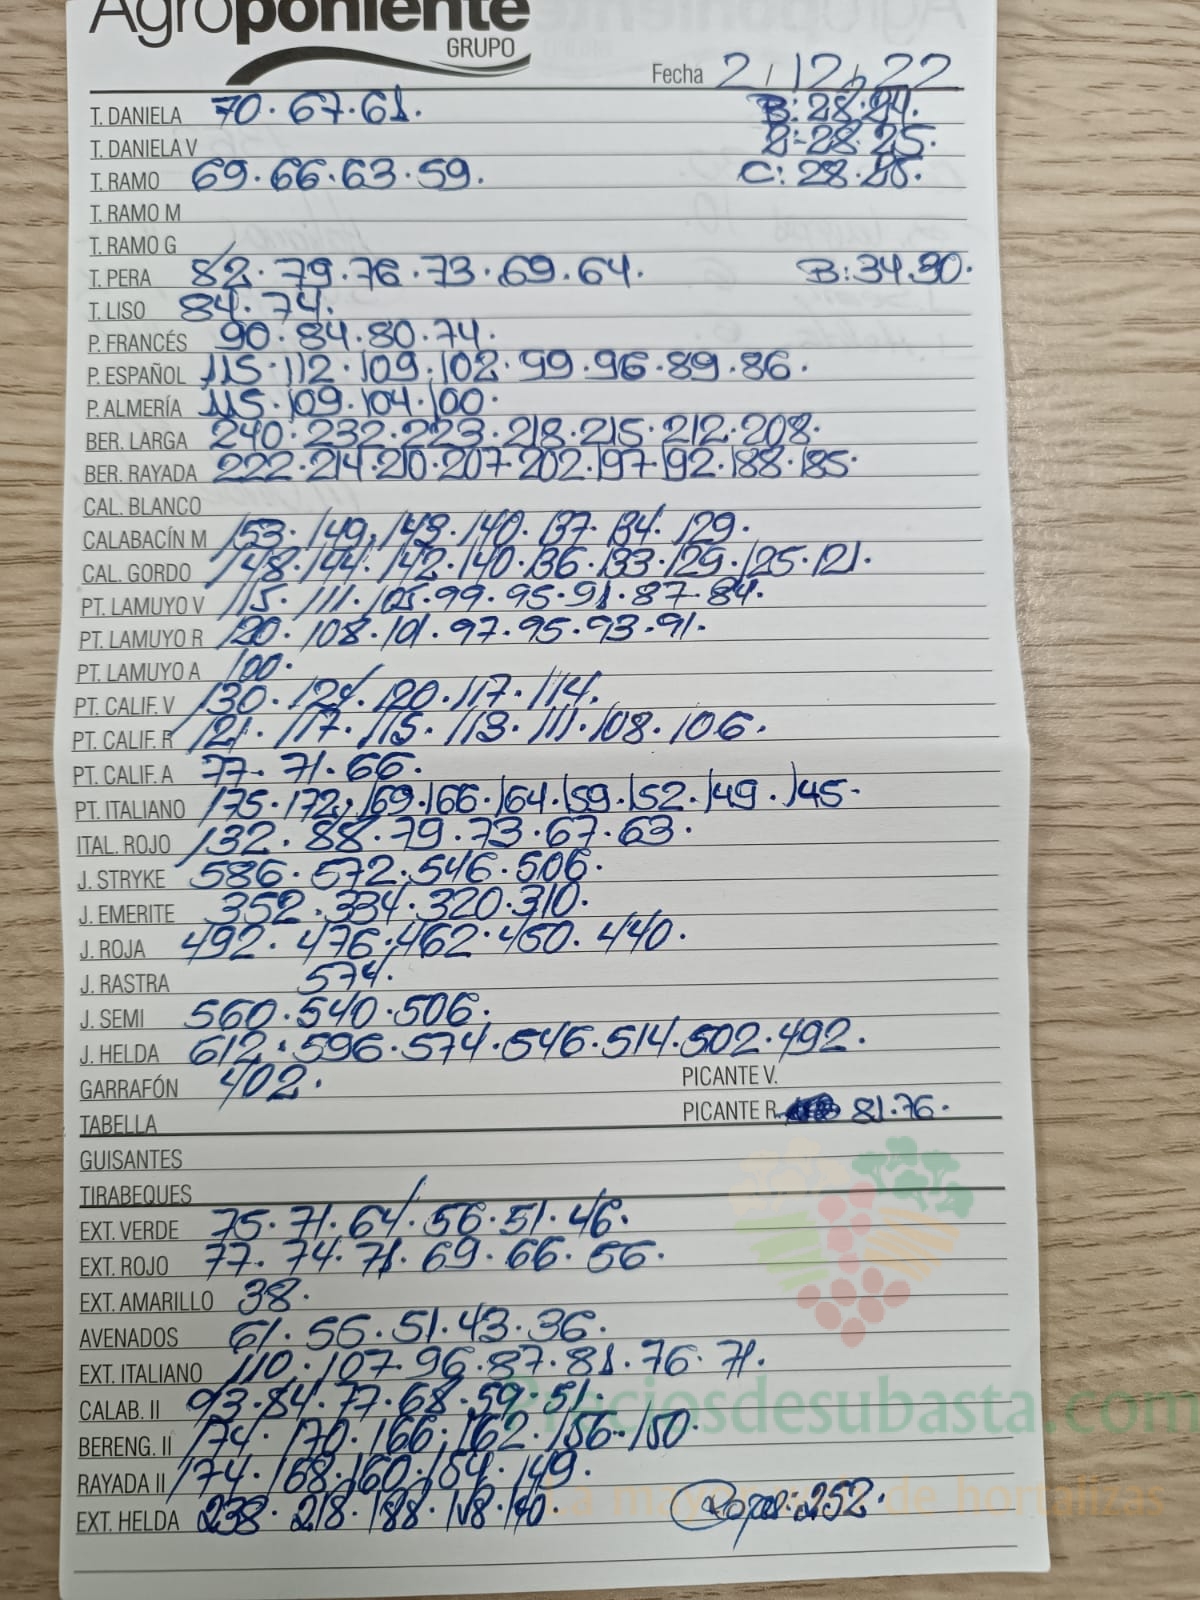 Agroponiente
GRUPO
Fecha 2/12/22
T. DANIELA 70.67.61. B:28.24.
T. DANIELA V 2:28.25.
T. RAMO 69.66.63.59. C:28.25.
T. RAMO M
T. RAMO G
T. PERA 82.79.76.73.69.64. B:34.30.
T. LISO 84.74.
P. FRANCÉS 90.84.80.74.
P. ESPAÑOL 115.112.109.102.99.96.89.86.
P. ALMERÍA 115.109.104.100.
BER. LARGA 240.232.223.218.215.212.208.
BER. RAYADA 222.214.210.207.202.197.192.188.185.
CAL. BLANCO
CALABACÍN M 153.149.143.140.137.134.129.
CAL. GORDO 148.144.142.140.136.133.129.125.121.
PT. LAMUYO V 115.111.105.99.95.91.87.84.
PT. LAMUYO R 120.108.101.97.95.93.91.
PT. LAMUYO A 100.
PT. CALIF. V 130.124.120.117.114.
PT. CALIF. R 121.117.115.113.111.108.106.
PT. CALIF. A 77.71.66.
PT. ITALIANO 175.172.169.166.164.159.152.149.145.
ITAL. ROJO 132.88.79.73.67.63.
J. STRYKE 586.572.546.506.
J. EMERITE 352.334.320.310.
J. ROJA 492.476.462.450.440.
J. RASTRA 574.
J. SEMI 560.540.506.
J. HELDA 612.596.574.546.514.502.492.
GARRAFÓN 402. PICANTE V.
TABELLA PICANTE R. 81.76.
GUISANTES
TIRABEQUES
EXT. VERDE 75.71.64.56.51.46.
EXT. ROJO 77.74.71.69.66.56.
EXT. AMARILLO 38.
AVENADOS 61.56.51.43.36.
EXT. ITALIANO 110.107.96.87.81.76.71.
CALAB. II 93.84.77.68.59.51.
Preciosdesubasta.com
BERENG. II 174.170.166.162.156.150.
RAYADA II 174.168.160.154.149.
EXT. HELDA 238.218.188. 252.
La mayor de hortalizas